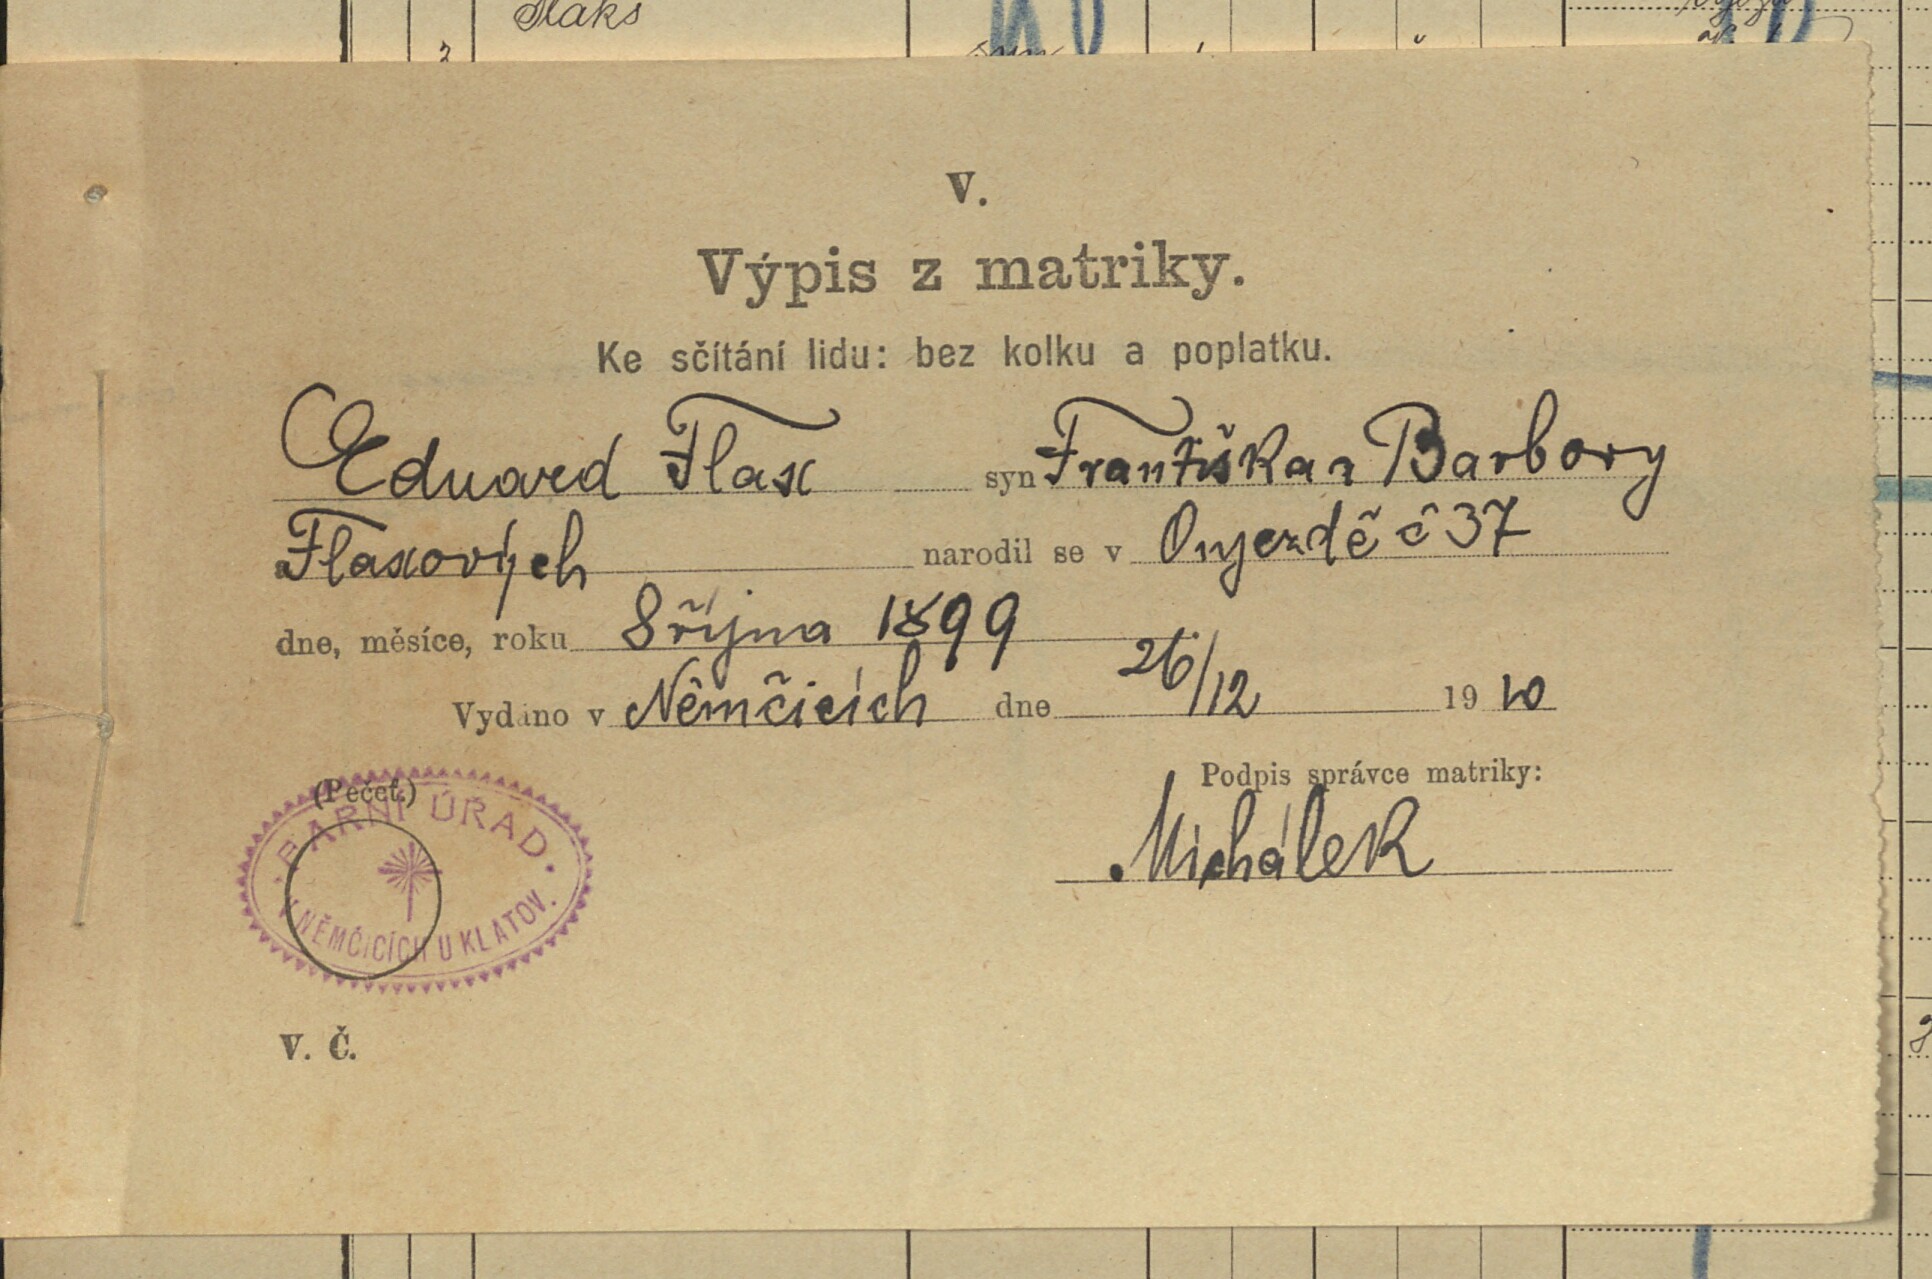 Flaks
3
syn
V.
Výpis z matriky.
Ke sčítání lidu: bez kolku a poplatku.
Eduard Flax syn Františka a Barbory
Flaxových narodil se v Onjezdě č 37
dne, měsíce, roku 8 října 1899
Vydáno v Němčicích dne 26/12 1910
(Pečeť.)
FARNÍ ÚŘAD
V NĚMČICÍCH U KLATOV.
Podpis správce matriky:
Michálek
V. Č.